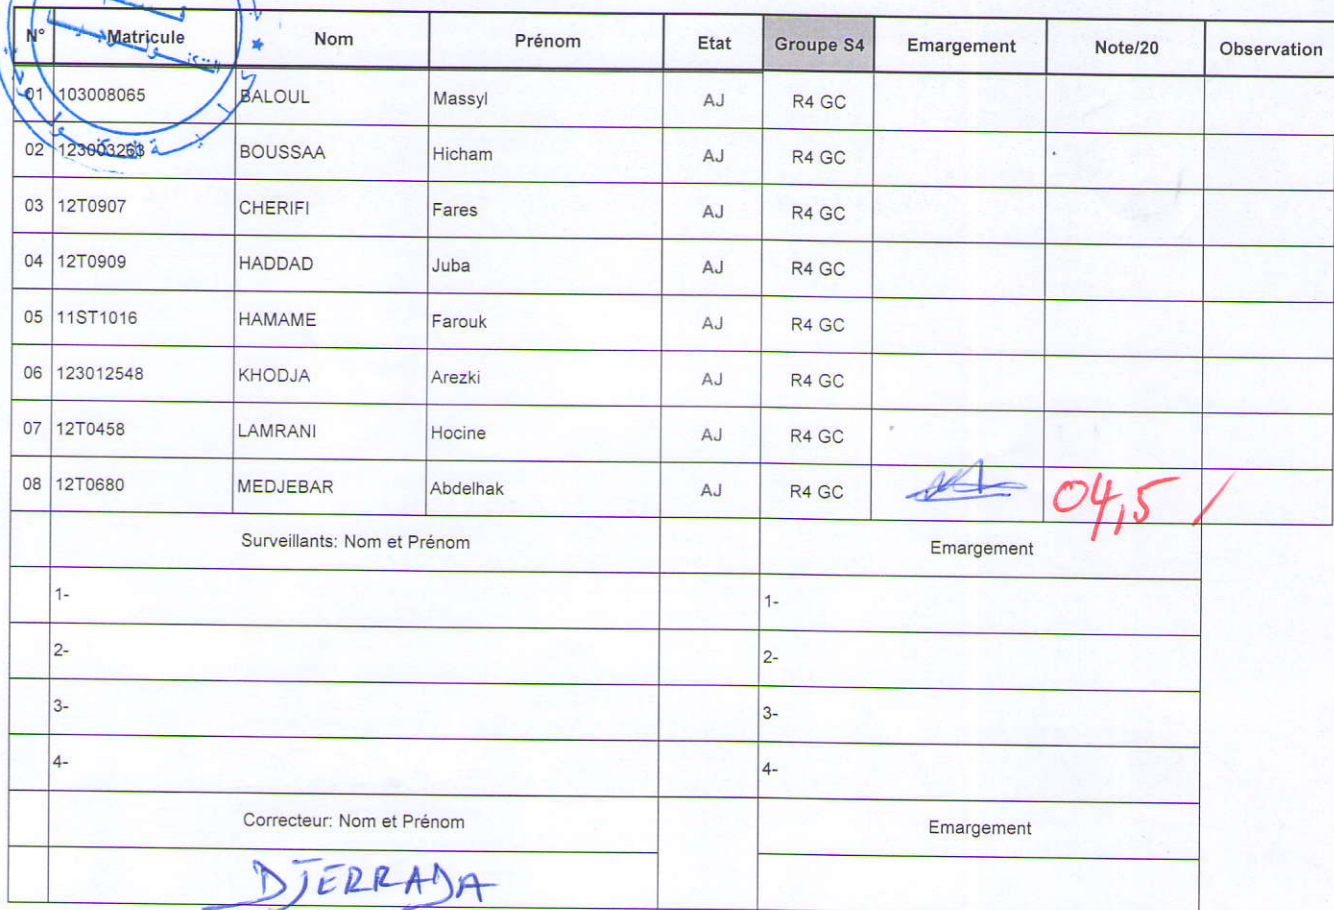 N° Matricule Nom Prénom Etat Groupe S4 Emargement Note/20 Observation
01 103008065 BALOUL Massyl AJ R4 GC
02 123003263 BOUSSAA Hicham AJ R4 GC
03 12T0907 CHERIFI Fares AJ R4 GC
04 12T0909 HADDAD Juba AJ R4 GC
05 11ST1016 HAMAME Farouk AJ R4 GC
06 123012548 KHODJA Arezki AJ R4 GC
07 12T0458 LAMRANI Hocine AJ R4 GC
08 12T0680 MEDJEBAR Abdelhak AJ R4 GC 04,5 /
Surveillants: Nom et Prénom Emargement
1- 1-
2- 2-
3- 3-
4- 4-
Correcteur: Nom et Prénom Emargement
DJERRADA